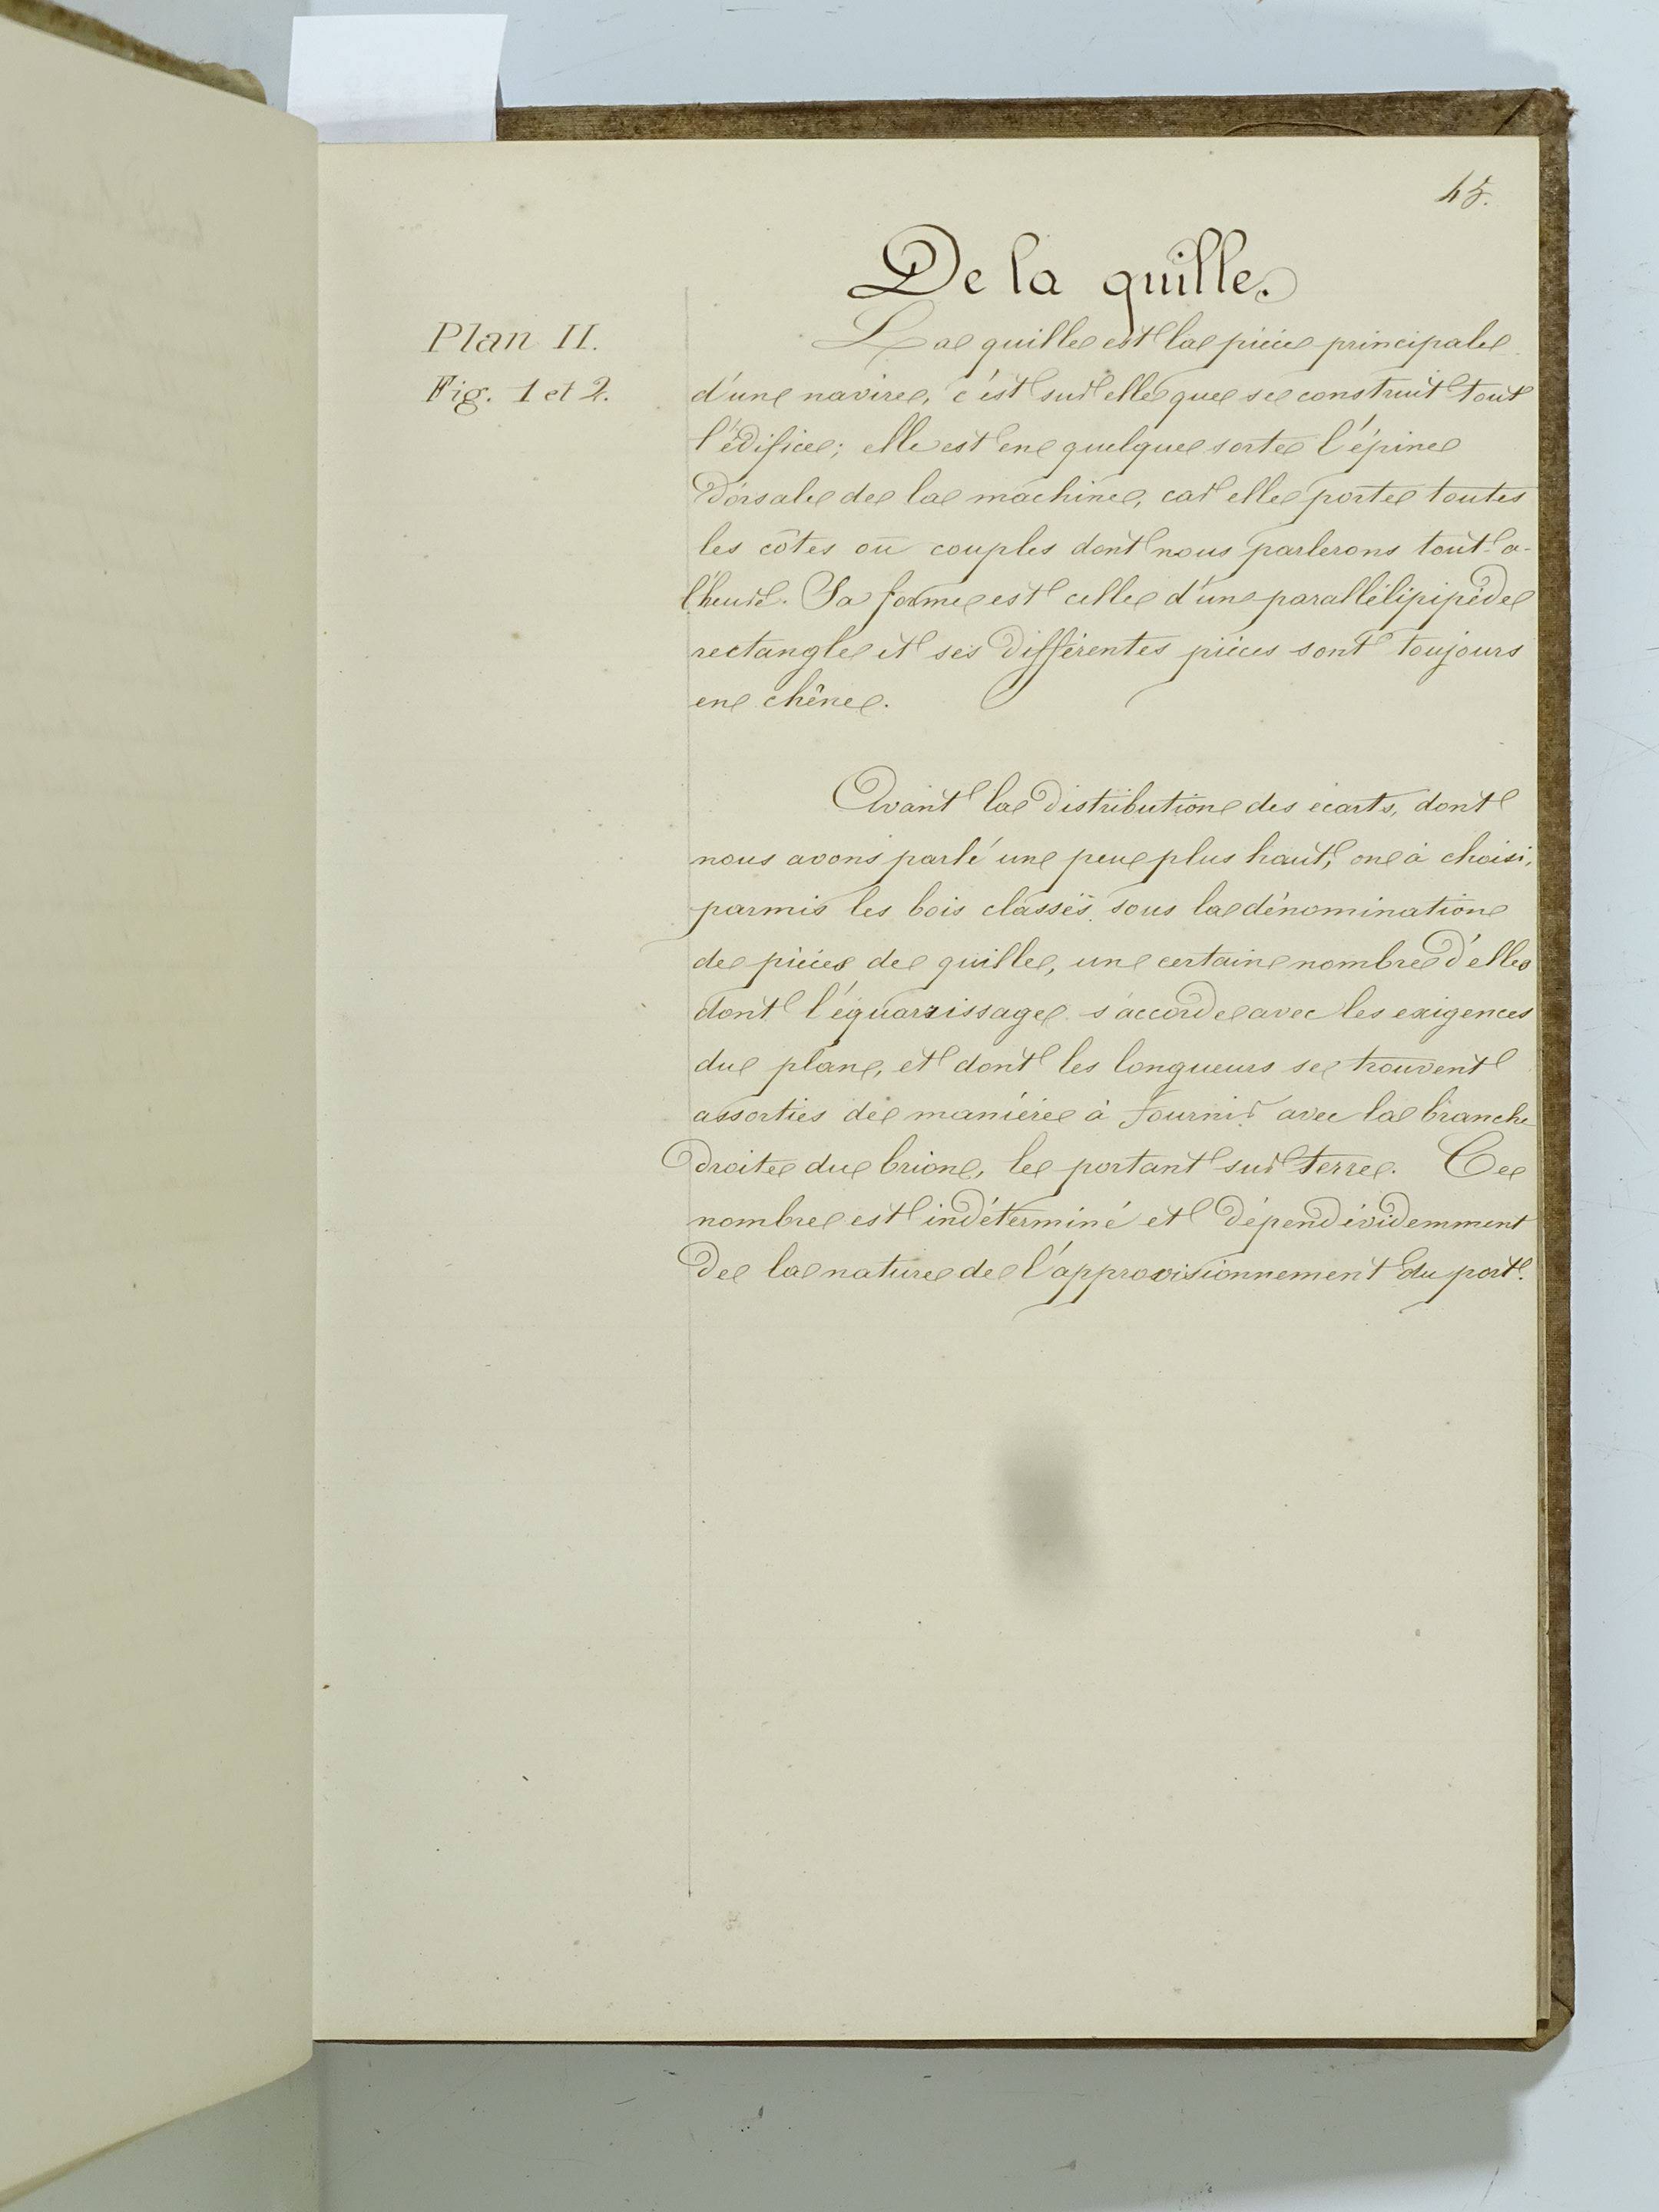 45.
De la quille.
Plan II.
Fig. 1 et 2.
La quille est la pièce principale
d'un navire, c'est sur elle que se construit tout
l'édifice; elle est en quelque sorte l'épine
dorsale de la machine, car elle porte toutes
les côtes ou couples dont nous parlerons tout-a-
l'heure. Sa forme est celle d'un parallélipipède
rectangle et ses différentes pièces sont toujours
en chêne.
Avant la distribution des écarts, dont
nous avons parlé un peu plus haut, on à choisi,
parmis les bois classés sous la dénomination
de pièces de quille, un certain nombre d'elles
dont l'équarrissage s'accorde avec les exigences
du plan, et dont les longueurs se trouvent
assorties de manière à fournir avec la branche
droite du brion, le portant sur terre. Ce
nombre est indéterminé et dépend évidemment
de la nature de l'approvisionnement du port.